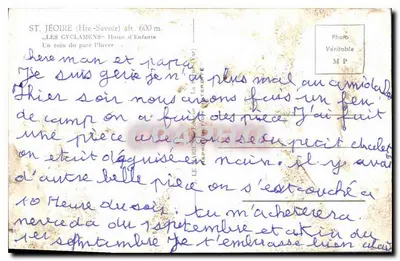 ST. JEOIRE (Hte-Savoie) alt. 600 m.
„LES CYCLAMENS" Home d'Enfants
Un coin du parc l'hiver
Photo
Véritable
M P
chere man et papa
Je suis gerie je n'ai plus mal au
hier soir nous avons fais un feu
de camp on a fait des piece J'ai fait
une piece avec nous
on etait déguise en nain. il y avai
d'autre belle piece on s'est couché a
10 Heure du soir. tu m'achetera
nevada du 1 septembre et akim du
1er septembre Je t'embrasse bien